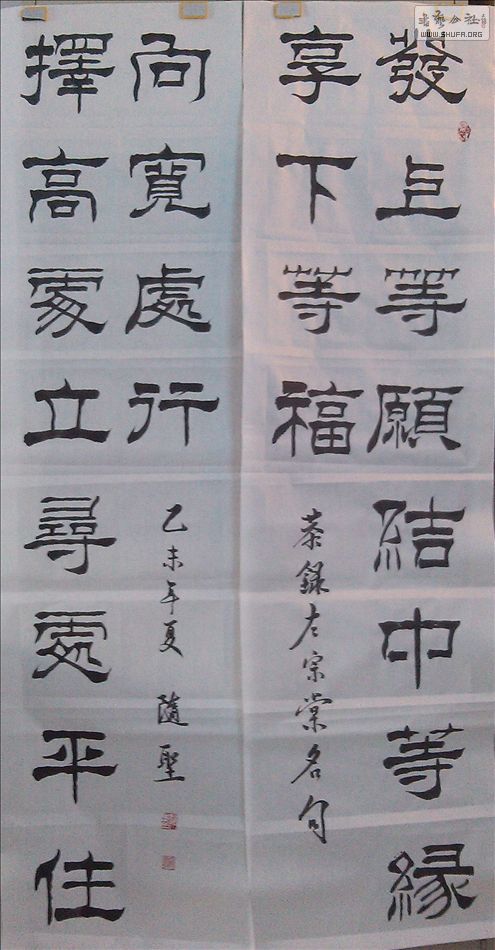 發上等願結中等緣
享下等福
恭録左宗棠名句
擇高處立尋處平住
向寬處行
乙未年夏 隨聖
書藝公社
WWW.SHUFA.ORG